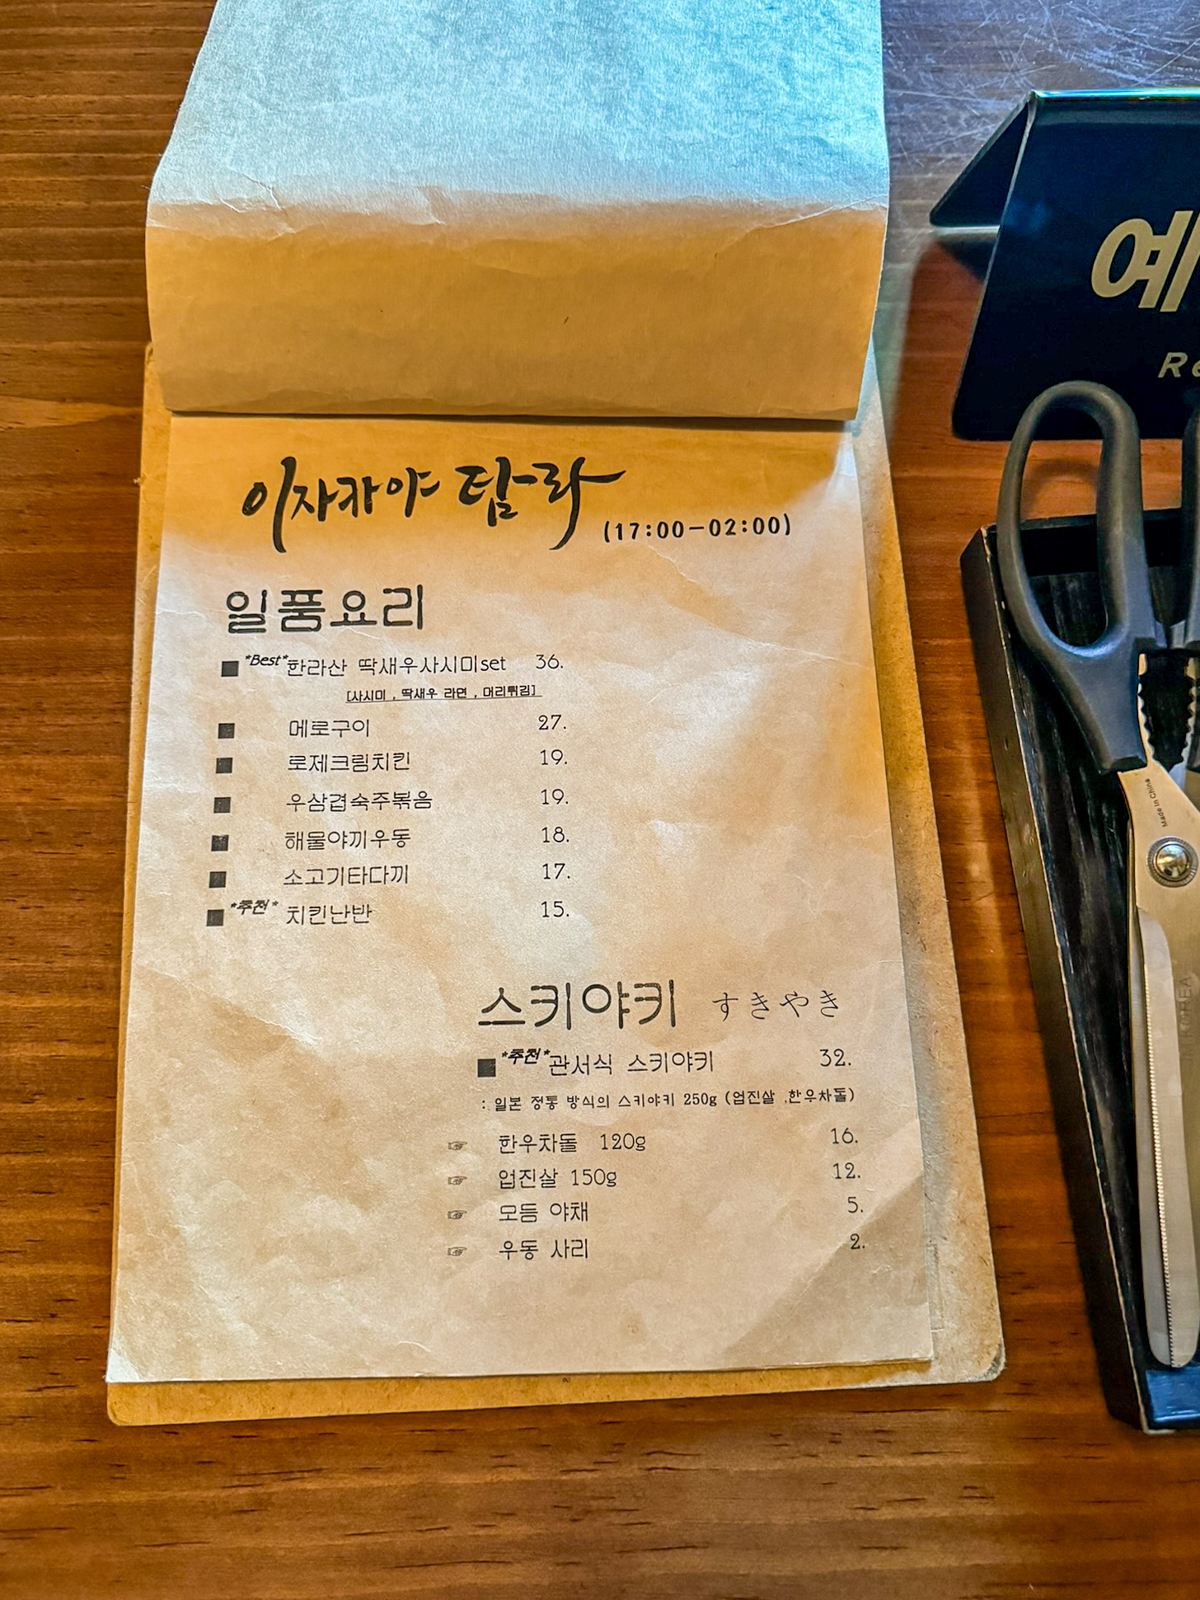 이자카야 탐라
(17:00-02:00)
일품요리
■ *Best* 한라산 딱새우사시미set 36.
[사시미 , 딱새우 라면 , 머리튀김]
■ 메로구이 27.
■ 로제크림치킨 19.
■ 우삼겹숙주볶음 19.
■ 해물야끼우동 18.
■ 소고기타다끼 17.
■ *추천* 치킨난반 15.
스키야키 すきやき
■ *추천* 관서식 스키야키 32.
: 일본 정통 방식의 스키야키 250g (업진살 .한우차돌)
☞ 한우차돌 120g 16.
☞ 업진살 150g 12.
☞ 모듬 야채 5.
☞ 우동 사리 2.
예
Re
Made in China